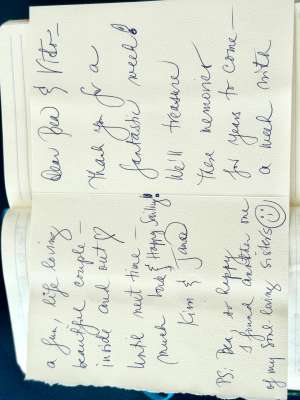 Dear Bea & Vitor—
Thank you for a
fantastic week!
We'll treasure
these memories
for years to come—
a week with
a fun, life loving
beautiful couple—
inside and out ♡
Until next time—
much love & Happy
Kim &
PS. Bea, so happy
I found another one
of my soul-loving sisters ☺